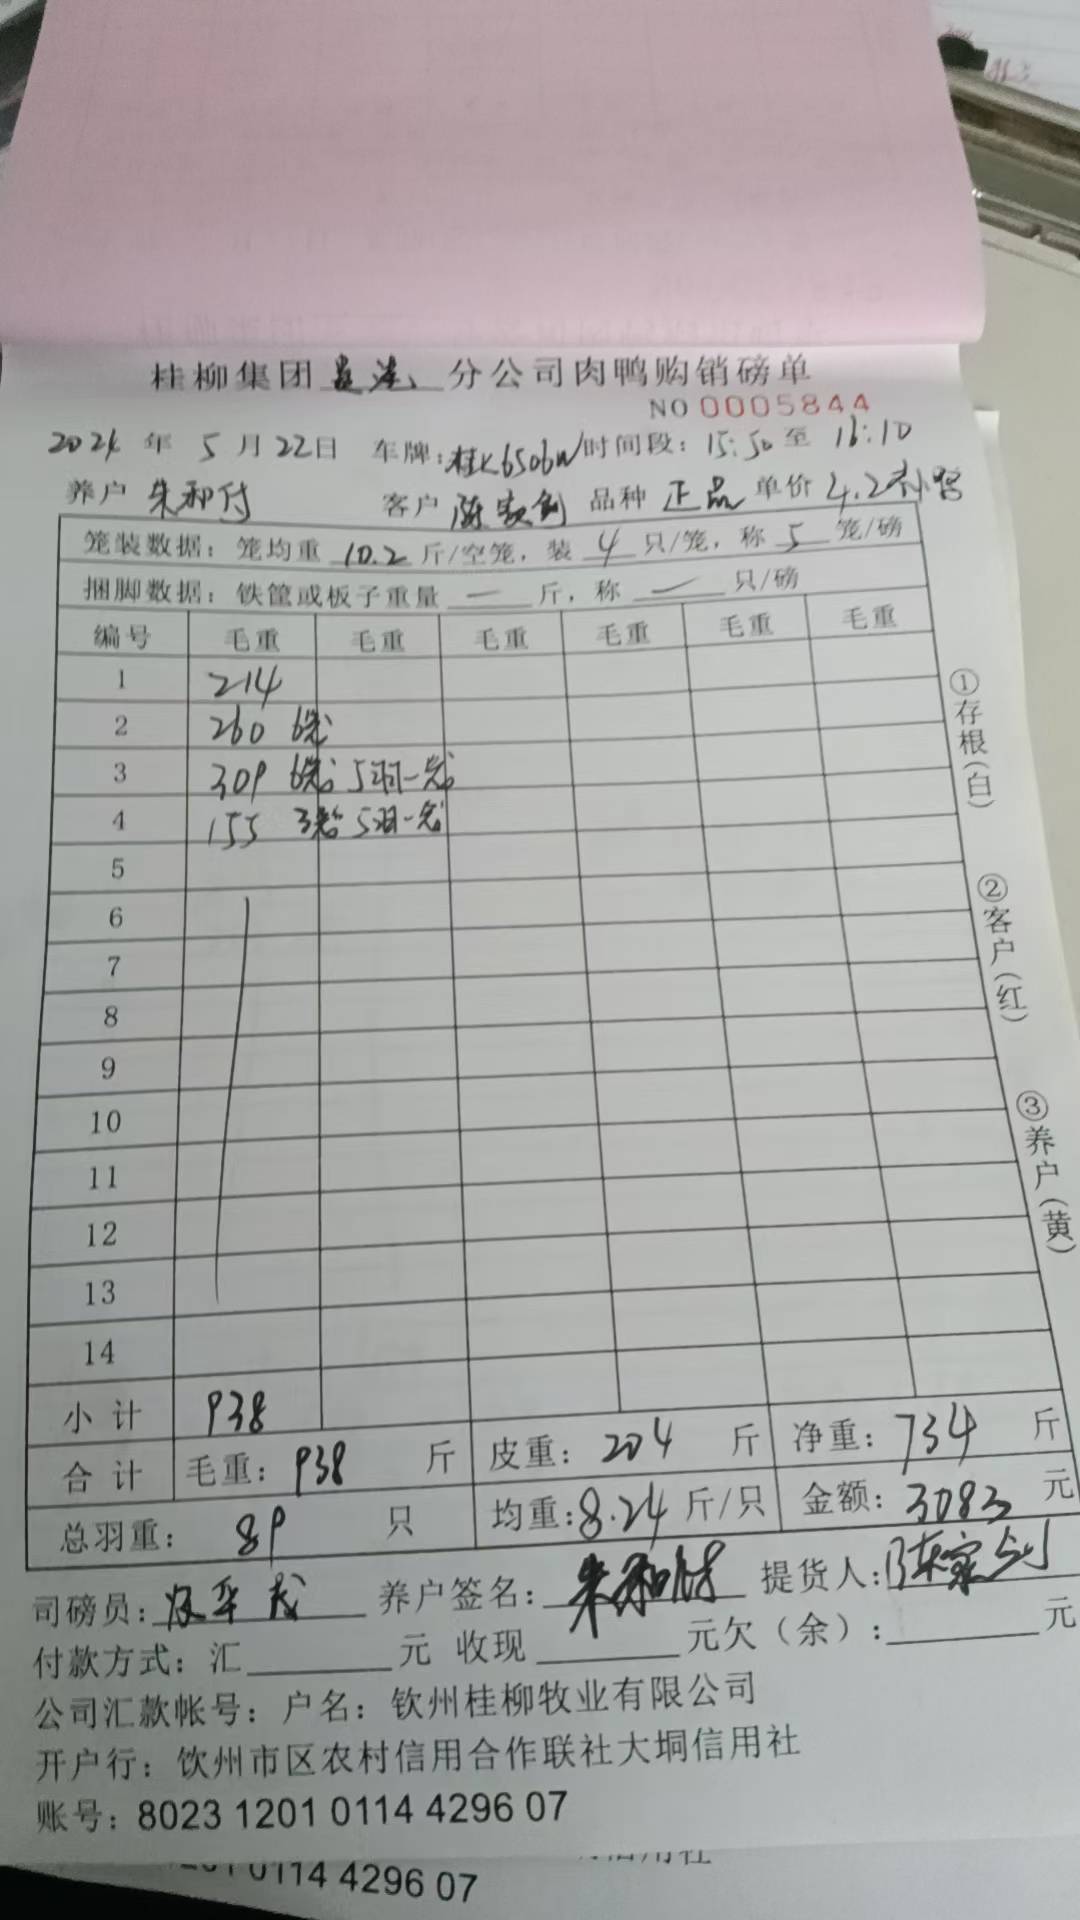 桂柳集团 分公司肉鸭购销磅单
NO 0005844
2024 年 5 月 22日 车牌:桂K6506W 时间段:15:50至 16:10
养户 朱和付 客户 陈家剑 品种 正品 单价 4.2
笼装数据:笼均重 10.2 斤/空笼,装 4 只/笼,称 5 笼/磅
捆脚数据:铁筐或板子重量 一 斤,称 一 只/磅
编号 毛重 毛重 毛重 毛重 毛重 毛重
1 214
2 260 6笼
3 309 6笼 5羽一笼
4 155 3笼 5羽一笼
5
6
7
8
9
10
11
12
13
14
小计 938
合计 毛重:938 斤 皮重:204 斤 净重:734 斤
总羽重:89 只 均重:8.24 斤/只 金额:3083 元
司磅员: 养户签名:朱和付 提货人:陈家剑
付款方式:汇 元 收现 元欠(余): 元
公司汇款帐号:户名:钦州桂柳牧业有限公司
开户行:钦州市区农村信用合作联社大垌信用社
账号:8023 1201 0114 4296 07
①存根(白)
②客户(红)
③养户(黄)
1201 0114 4296 07